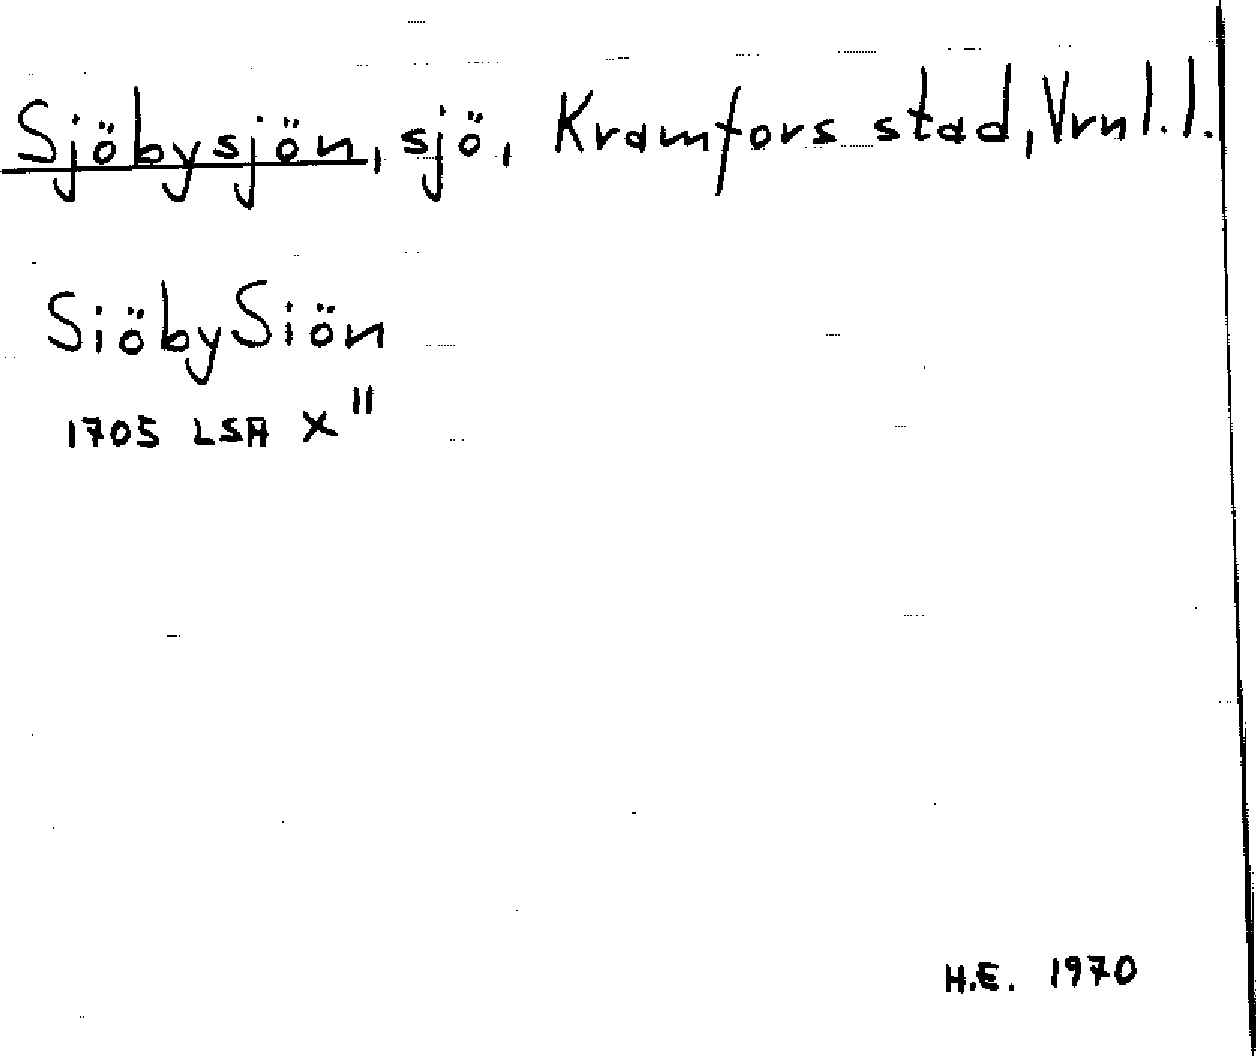 Sjöbysjön, sjö, Kramfors stad, Vrnl.l.
SiöbySiön
1705 LSA X"
H.E. 1970